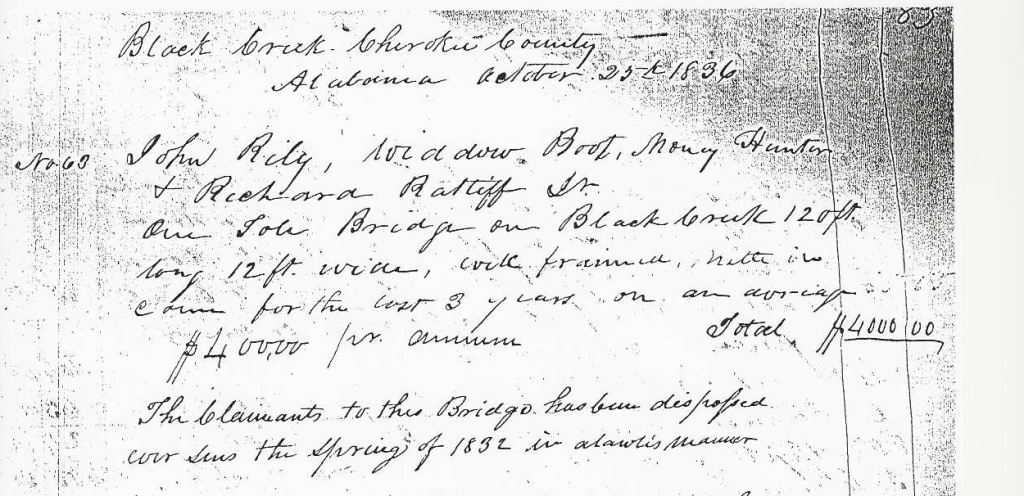 83
Black Creek Cherokee County
Alabama October 25th 1836
No 63 John Rily, Widdow Boot, Money Hunter
& Richard Ratliff Jr.
One Tole Bridge on Black Creek 120ft.
long 12 ft. wide, well framied, nette in
come for the last 3 years on an avriage
$400,00 pr. annum Total $4000 00
The Claimants to this Bridge has been dispossed
ever sens the Spring of 1832 in alawlis manner